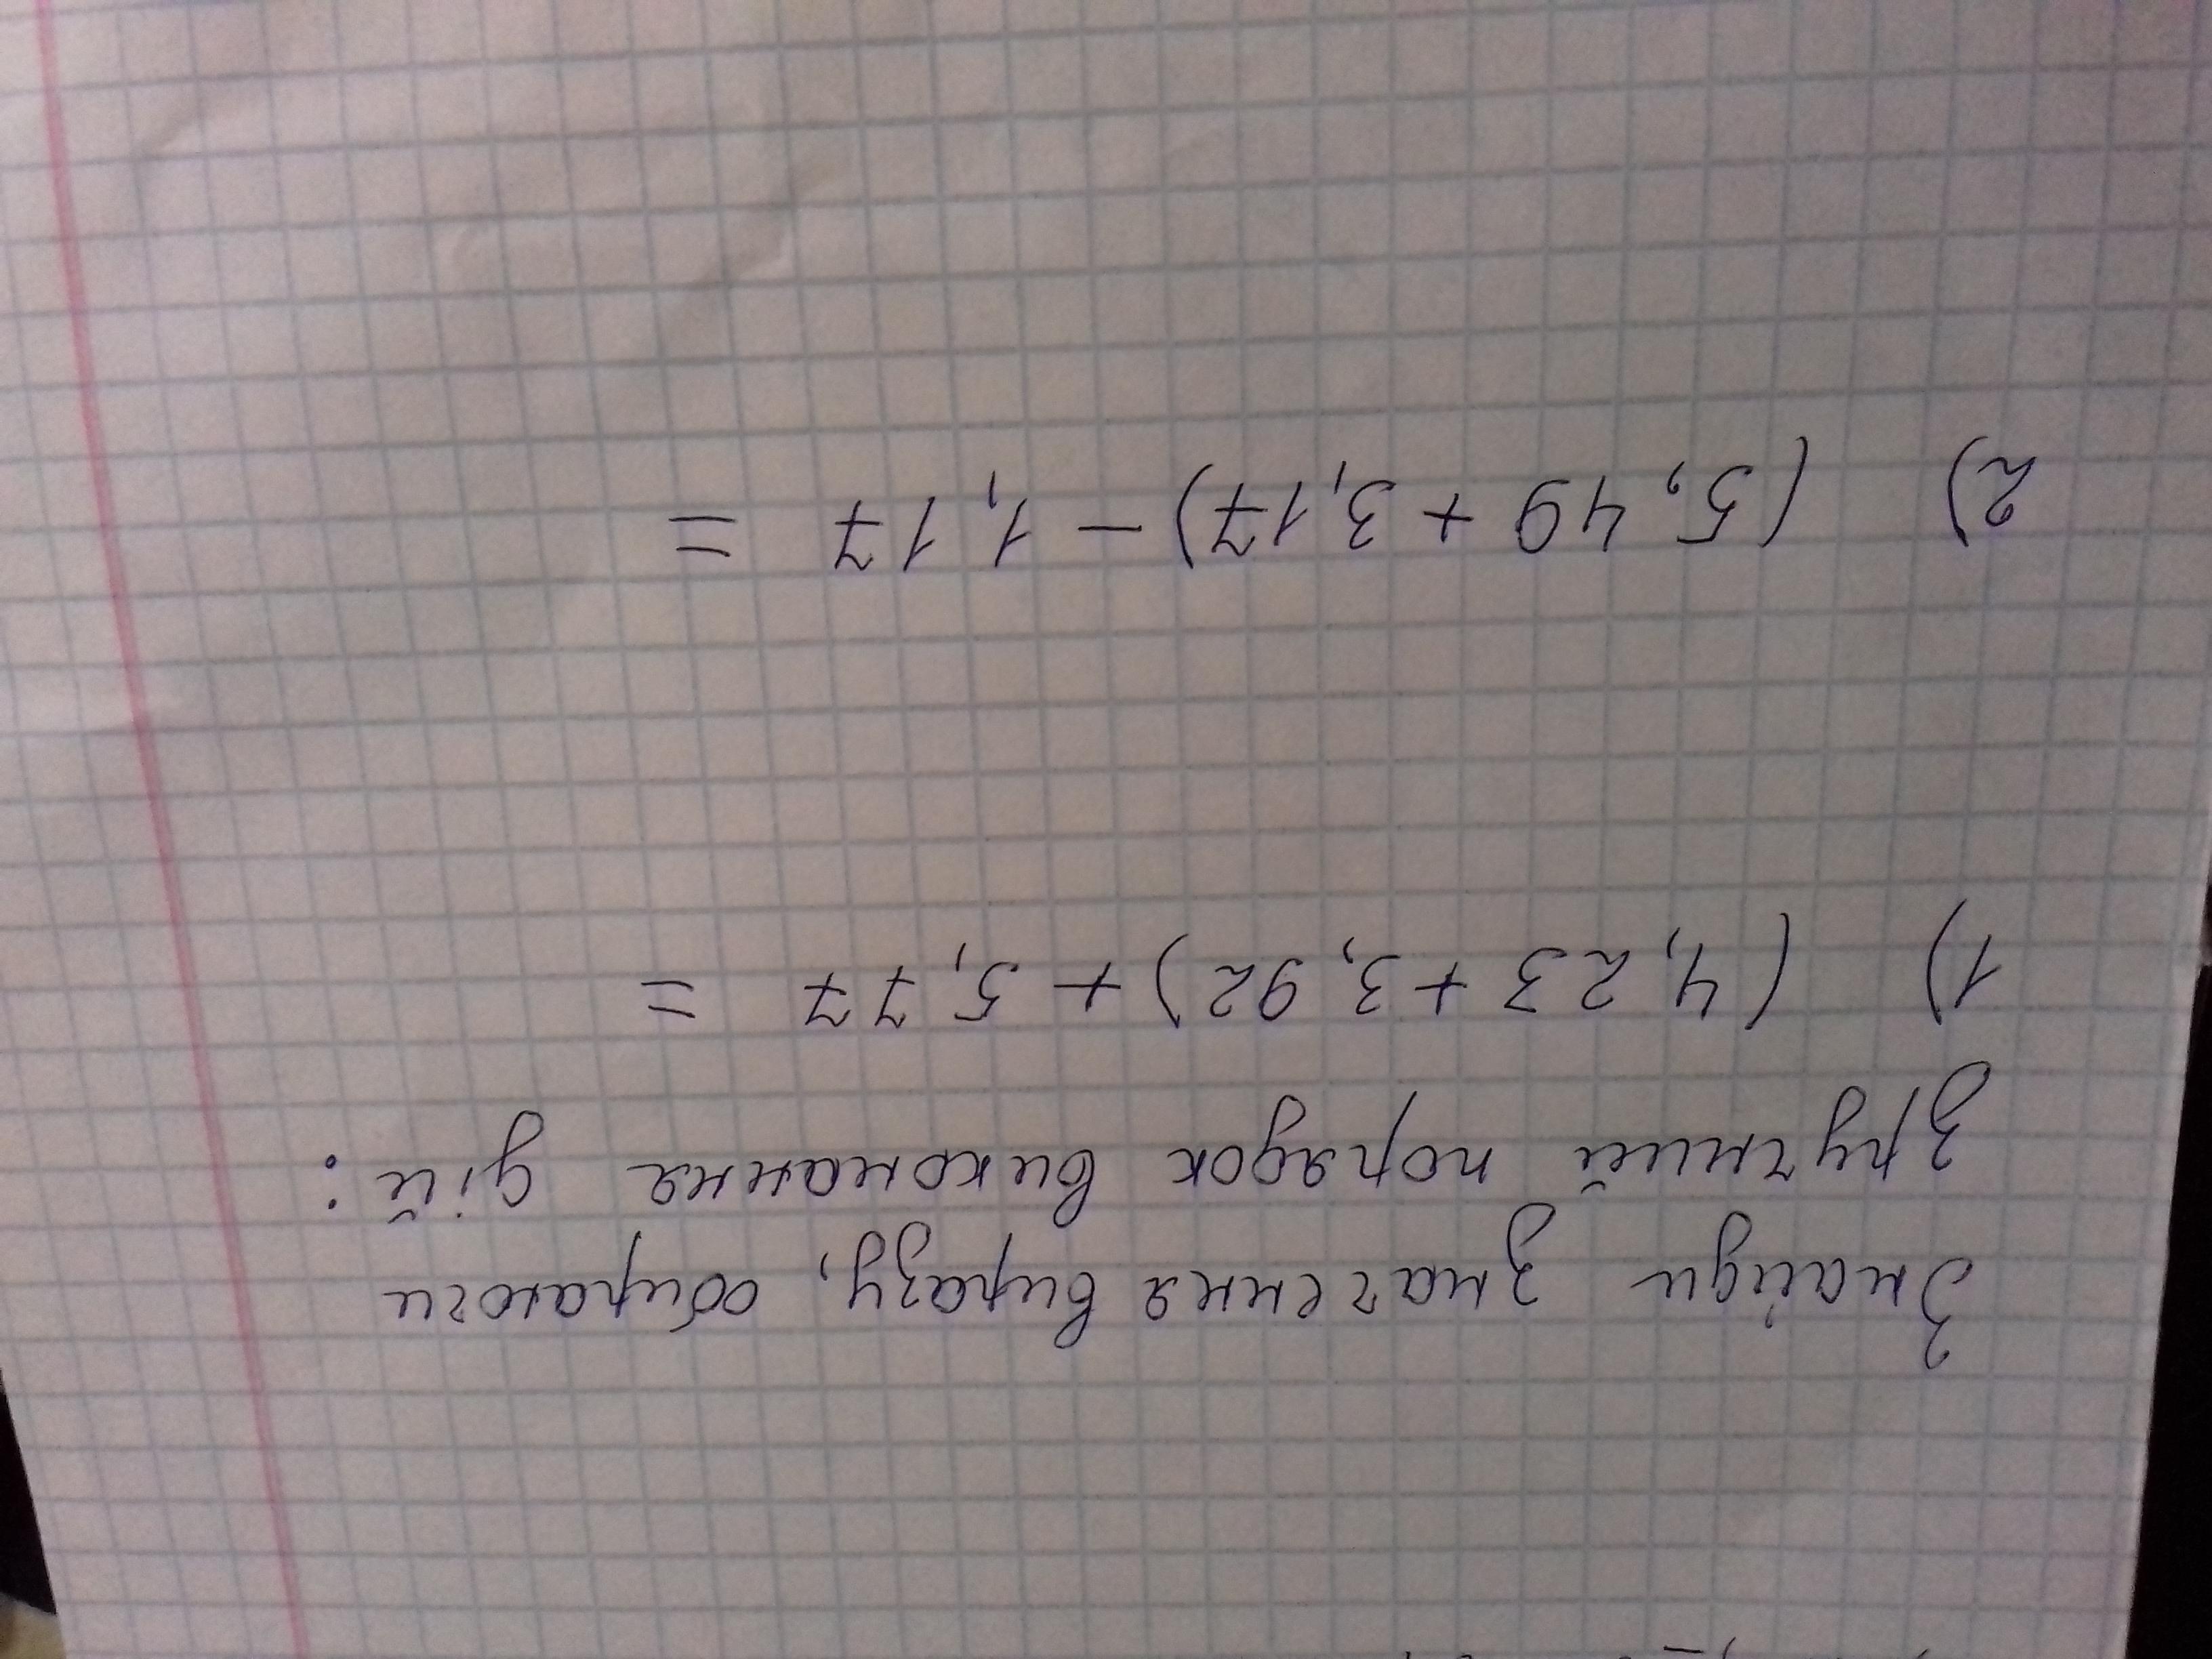 Знайди значення виразу, обираючи
зручний порядок виконання дій:
1) (4,23 + 3,92) + 5,77 =
2) (5,49 + 3,17) - 1,17 =